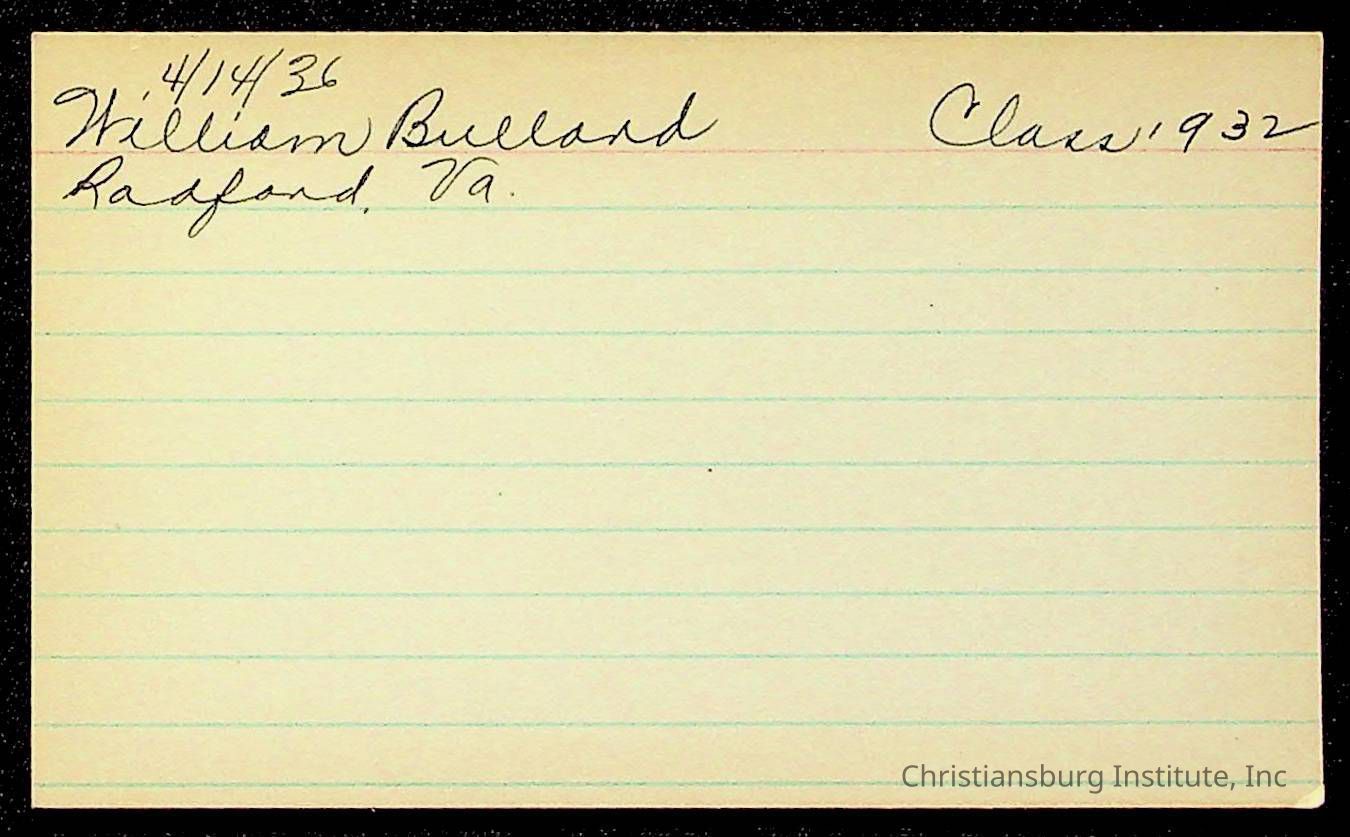 4/14/36
William Bullard Class 1932
Radford, Va.
Christiansburg Institute, Inc